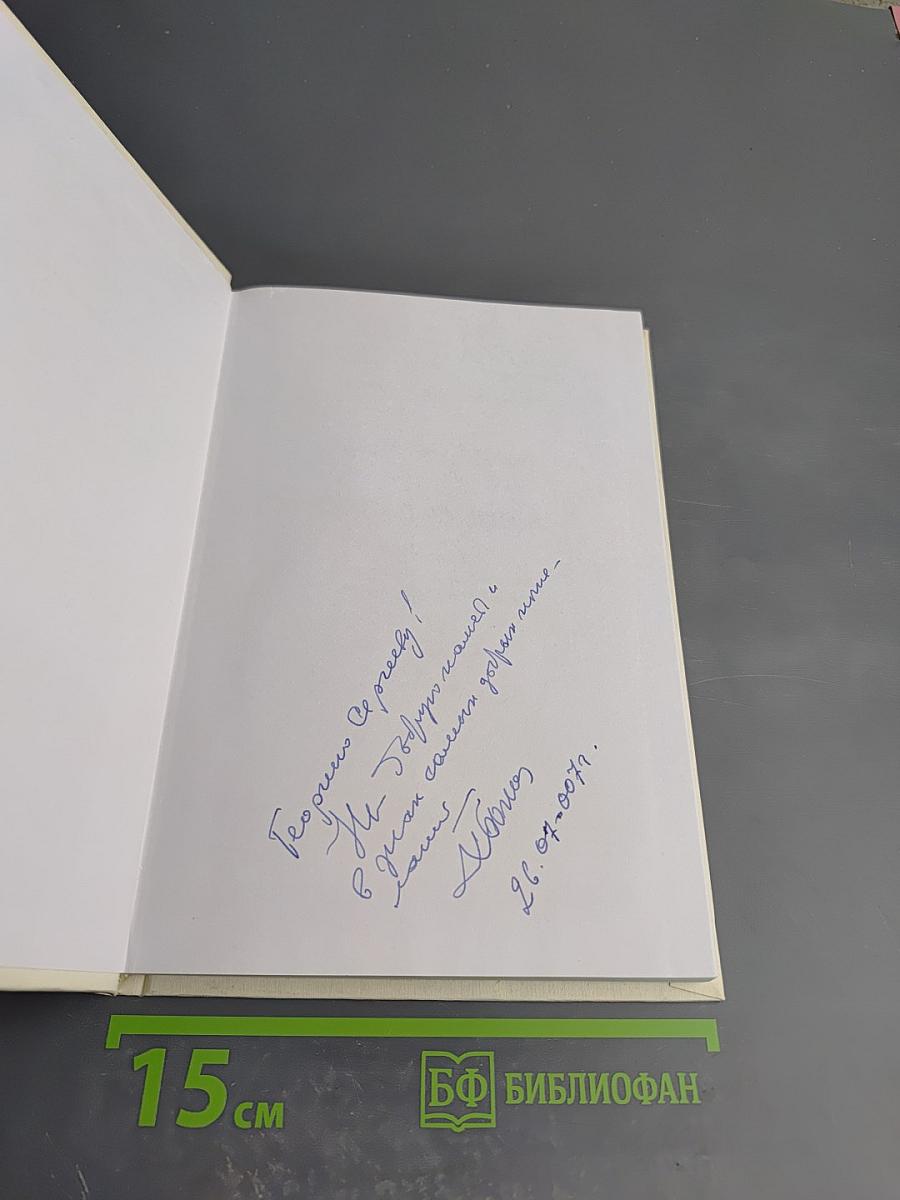 Георгию Сергееву!
На добрую память и
в знак самых добрых поже-
ланий
26.07.007г.
15 см
БФ БИБЛИОФАН